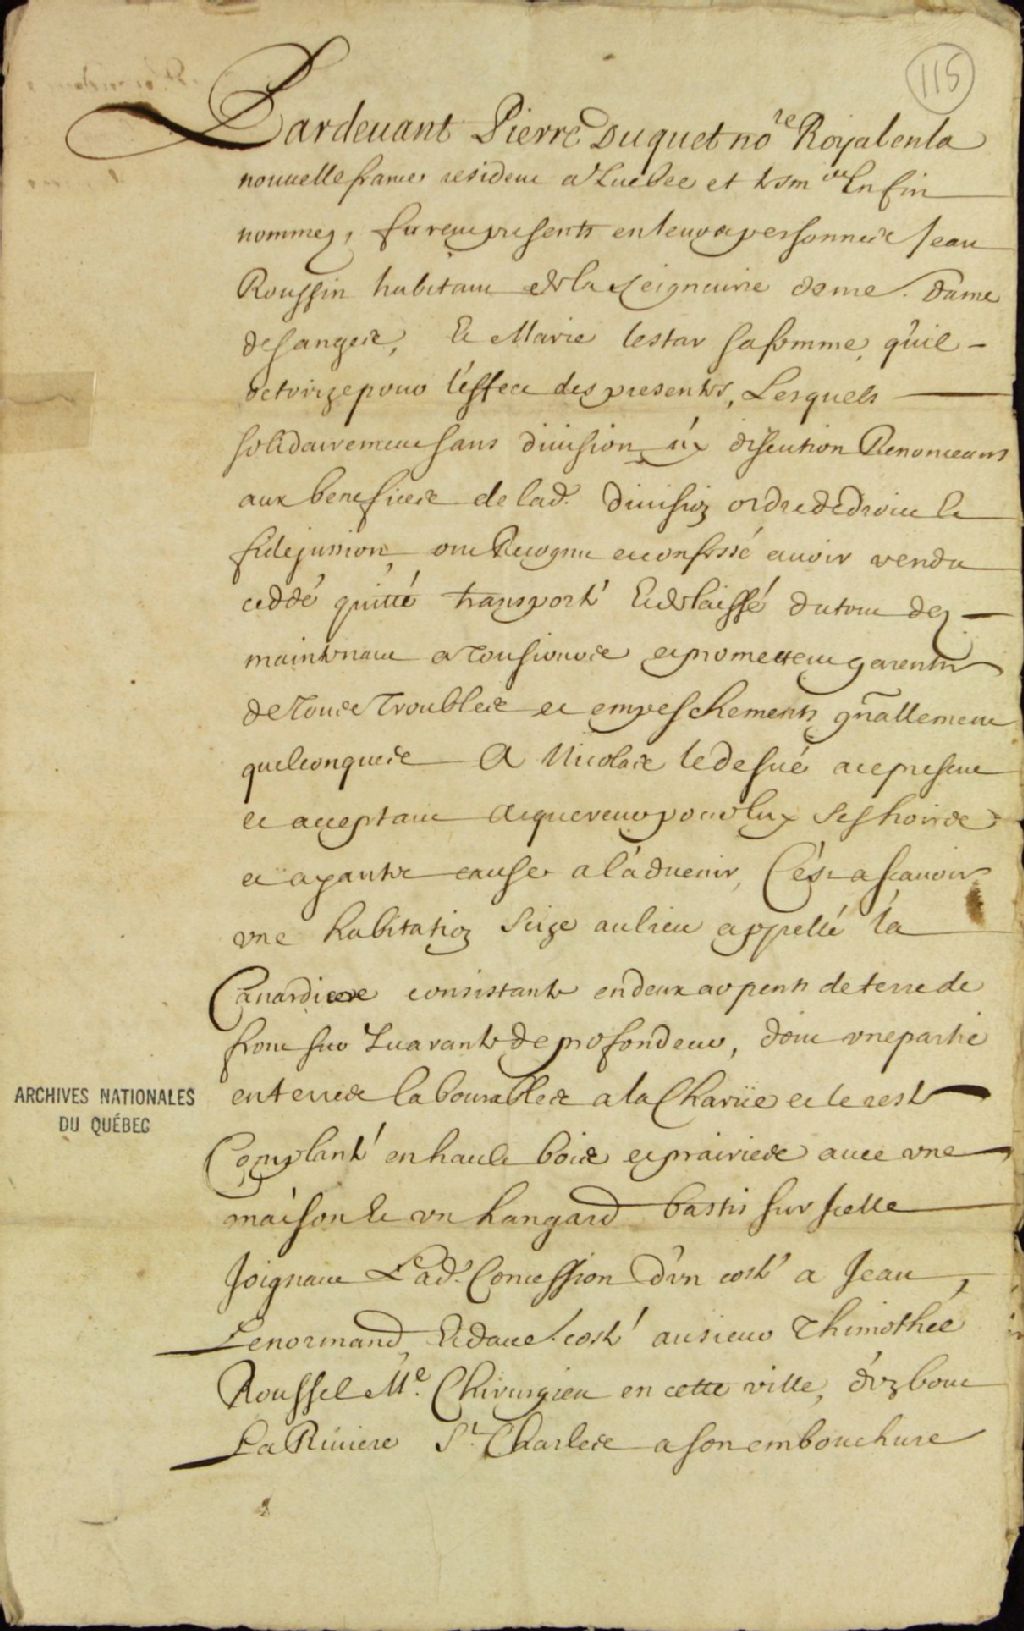 115
Pardevant Pierre Duquet no.re Royal en la
nouvelle france resident a Quebec et tesm.ins En fin
nommez, furent presents en leurs personnes Jean
Roussin habitant de la seigneurie de n.re Dame
des anges, Et Marie letar sa femme, qu'il
octorize pour l'effect des presentes, Lesquels
solidairement sans division ny discution Renonceans
aux benefices de lad. division ordre de droict et
fidejussion ont Recognu et confessé avoir vendu
ceddé quitté transporté Et delaissé du tout dez
maintenant a Tousiours et promettent garentir
de Tous Troubles et empeschements gñallement
quelconques A Nicolas ledesué a ce present
et acceptant acquereur pour luy ses hoirs
et ayants cause a l'advenir, C'est a scavoir
vne habitation size au lieu appellé la
Canardiere consistante en deux arpents de terre de
front sur Quarante de profondeur, dont vne partie
en terres labourables a la Charüe et le reste
Complanté en haults bois et prairies avec vne
maison Et vn hangard bastis sur Icelle
Joignant Lad. Concession d'vn costé a Jean
Lenormand, Et d'autre costé au sieur Thimothée
Roussel M.e Chirurgien en cette ville, d'vn bout
La Riviere S.t Charles a son embouchure
ARCHIVES NATIONALES
DU QUÉBEC